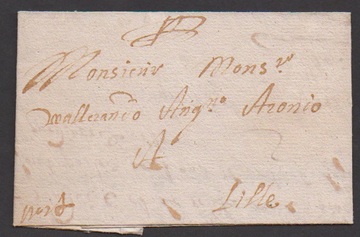 Monsieur Monsr.
Wallerando Angno Aronio
A
Lille
port